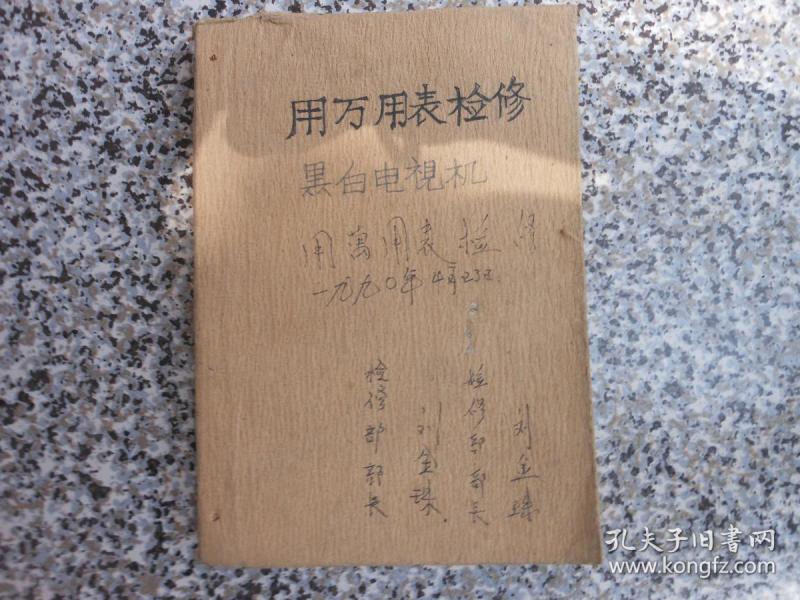 用万用表检修
黑白电視机
用萬用表检修
一九九〇年4月23日
检修部部长
刘金珠
检修部部长
刘金珠
孔夫子旧书网
www.kongfz.com